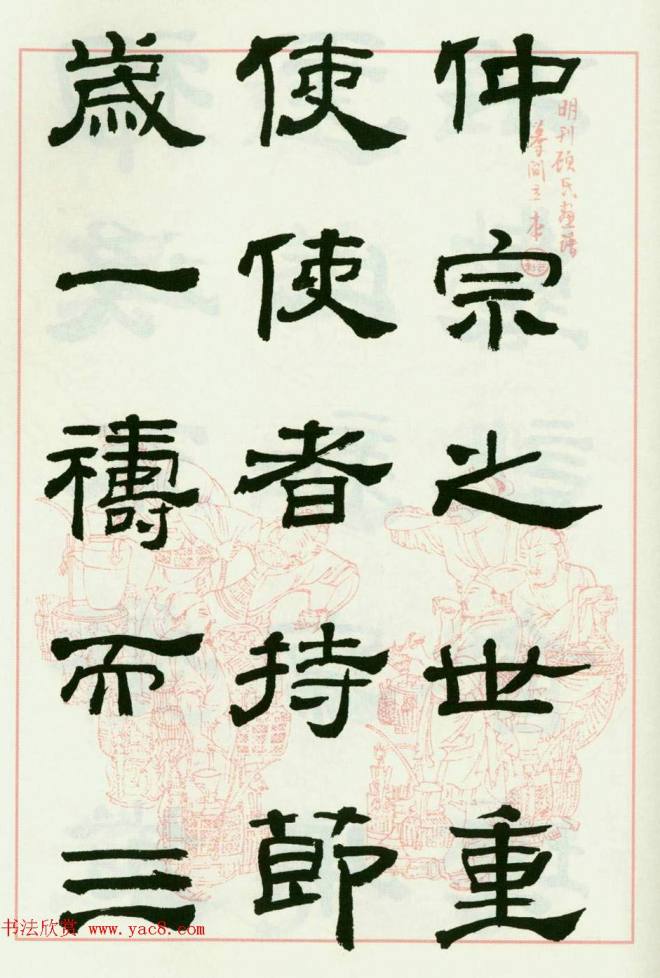 仲宗之世重
使使者持節
歲一禱而三
明刊顧氏畫譜
摹閻立本
书法欣赏 www.yac8.com